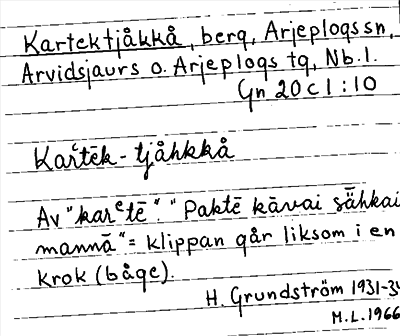 Kartektjåkkå, berg, Arjeplogssn,
Arvidsjaurs o. Arjeplogs tg, Nb.l.
Gn 20 c 1 : 10
Karᵉtēk - tjåhkkå
Av "karᵉtē". "Paktē kāvai sāhkai
mannā" = klippan går liksom i en
krok (båge).
H. Grundström 1931-34
M.L. 1966